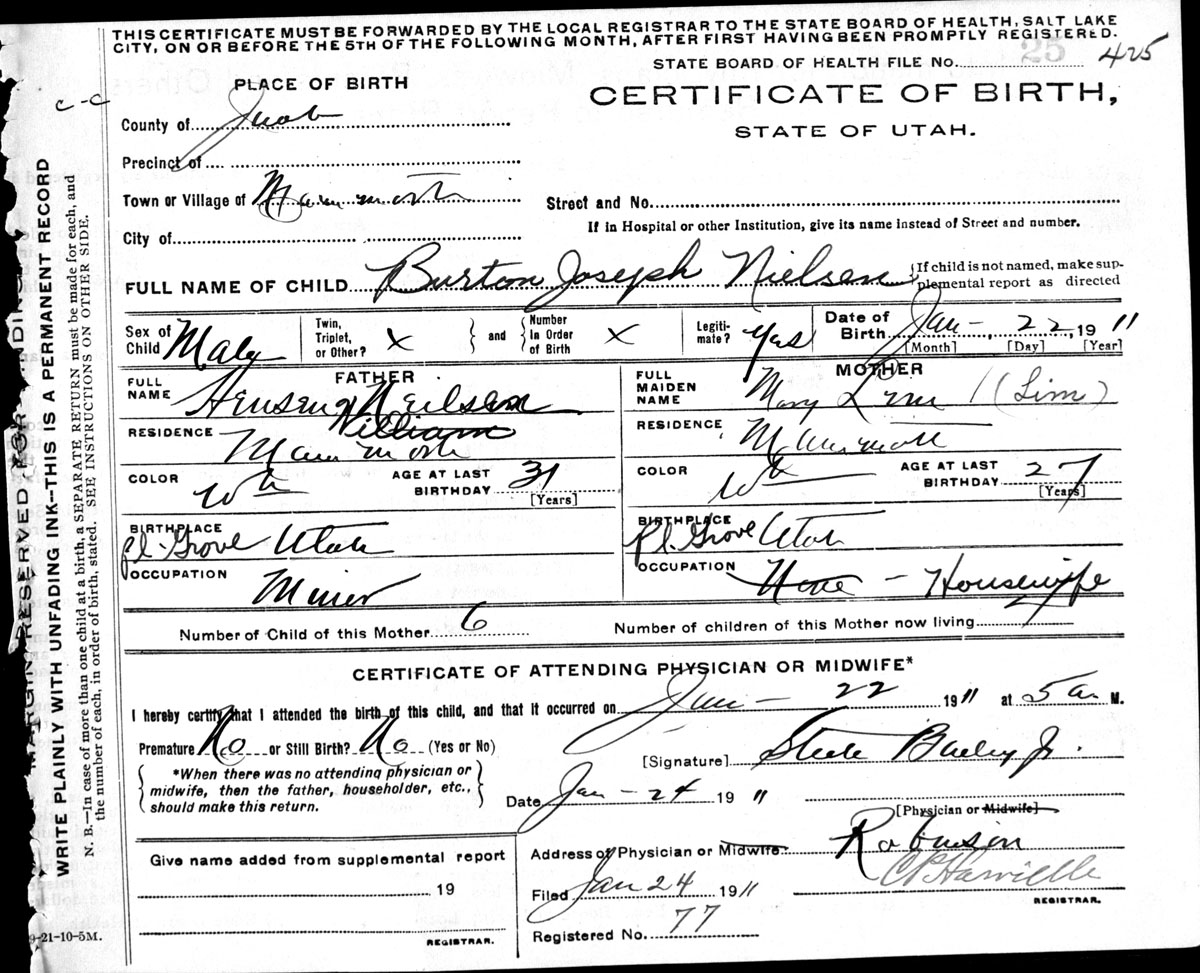 THIS CERTIFICATE MUST BE FORWARDED BY THE LOCAL REGISTRAR TO THE STATE BOARD OF HEALTH, SALT LAKE
CITY, ON OR BEFORE THE 5TH OF THE FOLLOWING MONTH, AFTER FIRST HAVING BEEN PROMPTLY REGISTERED.
STATE BOARD OF HEALTH FILE No. 25 425
C-C
PLACE OF BIRTH
CERTIFICATE OF BIRTH,
STATE OF UTAH.
County of Juab
Precinct of
Town or Village of Mammoth
Street and No.
If in Hospital or other Institution, give its name instead of Street and number.
City of
FULL NAME OF CHILD Burton Joseph Nielsen {If child is not named, make sup-
plemental report as directed
Sex of Child Male
Twin, Triplet, or Other? X
and
Number In Order of Birth X
Legiti-mate? Yes
Date of Birth Jan- 22 1911
[Month] [Day] [Year]
FATHER
FULL NAME Neilsen
William
RESIDENCE Mammoth
COLOR Wh
AGE AT LAST BIRTHDAY 31
[Years]
BIRTHPLACE
Pl. Grove Utah
OCCUPATION
Miner
MOTHER
FULL MAIDEN NAME Mary (Lim)
RESIDENCE Mammoth
COLOR Wh
AGE AT LAST BIRTHDAY 27
[Years]
BIRTHPLACE
Pl. Grove Utah
OCCUPATION
None - Housewife
Number of Child of this Mother 6
Number of children of this Mother now living
CERTIFICATE OF ATTENDING PHYSICIAN OR MIDWIFE*
I hereby certify that I attended the birth of this child, and that it occurred on Jan- 22 1911 at 5 am M.
Premature No or Still Birth? No (Yes or No)
*When there was no attending physician or
midwife, then the father, householder, etc.,
should make this return.
[Signature] Steele Bailey Jr.
Date Jan-24 1911
[Physician or Midwife]
Address of Physician or Midwife Robinson
Give name added from supplemental report
19
REGISTRAR.
Filed Jan 24 1911
REGISTRAR.
Registered No. 77
9-21-10-5M.
MARGIN RESERVED FOR BINDING
WRITE PLAINLY WITH UNFADING INK--THIS IS A PERMANENT RECORD
N. B.—In case of more than one child at a birth, a SEPARATE RETURN must be made for each, and
the number of each, in order of birth, stated. SEE INSTRUCTIONS ON OTHER SIDE.